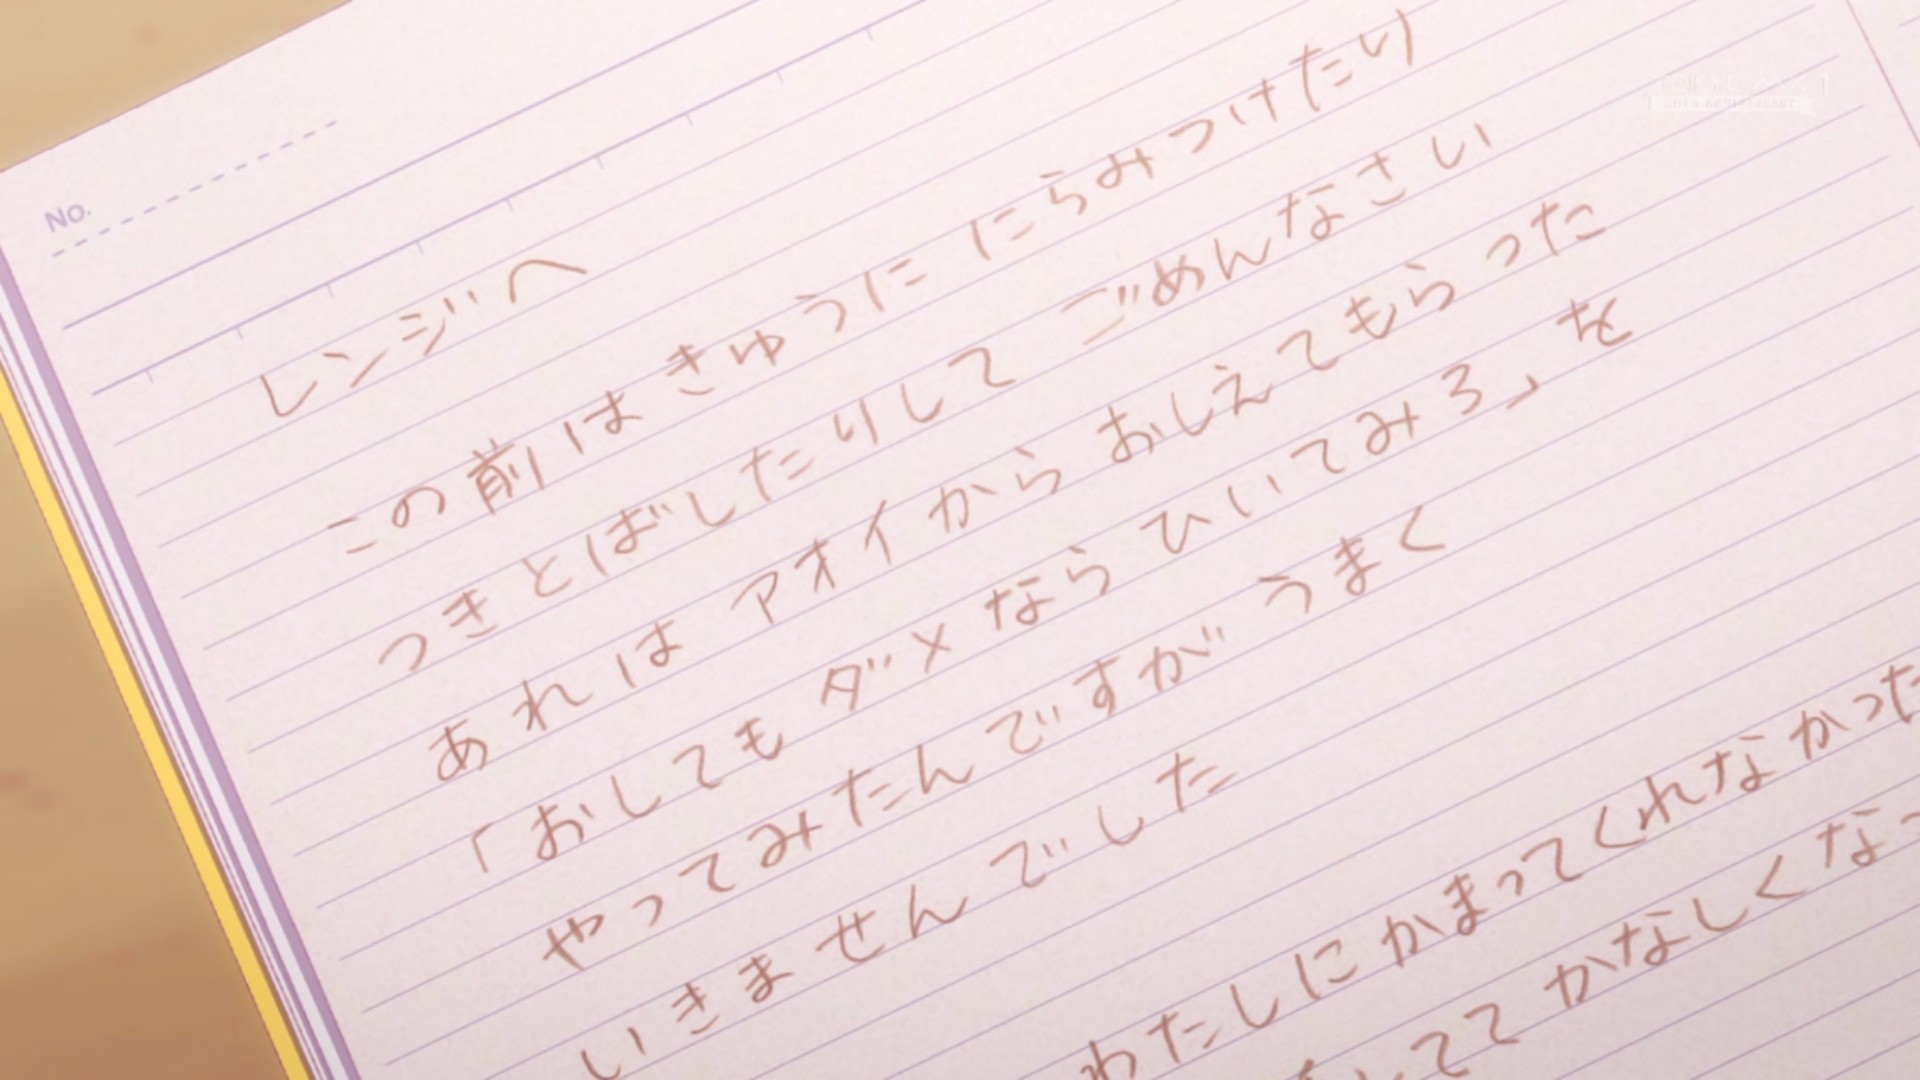 No.
レンジへ
この前は きゅうに にらみつけたり
つきとばしたりして ごめんなさい
あれは アオイから おしえてもらった
「おしても ダメ なら ひいてみろ」を
やってみたんですが うまく
いきませんでした
わたしにかまってくれなかった
てて かなしくなっ